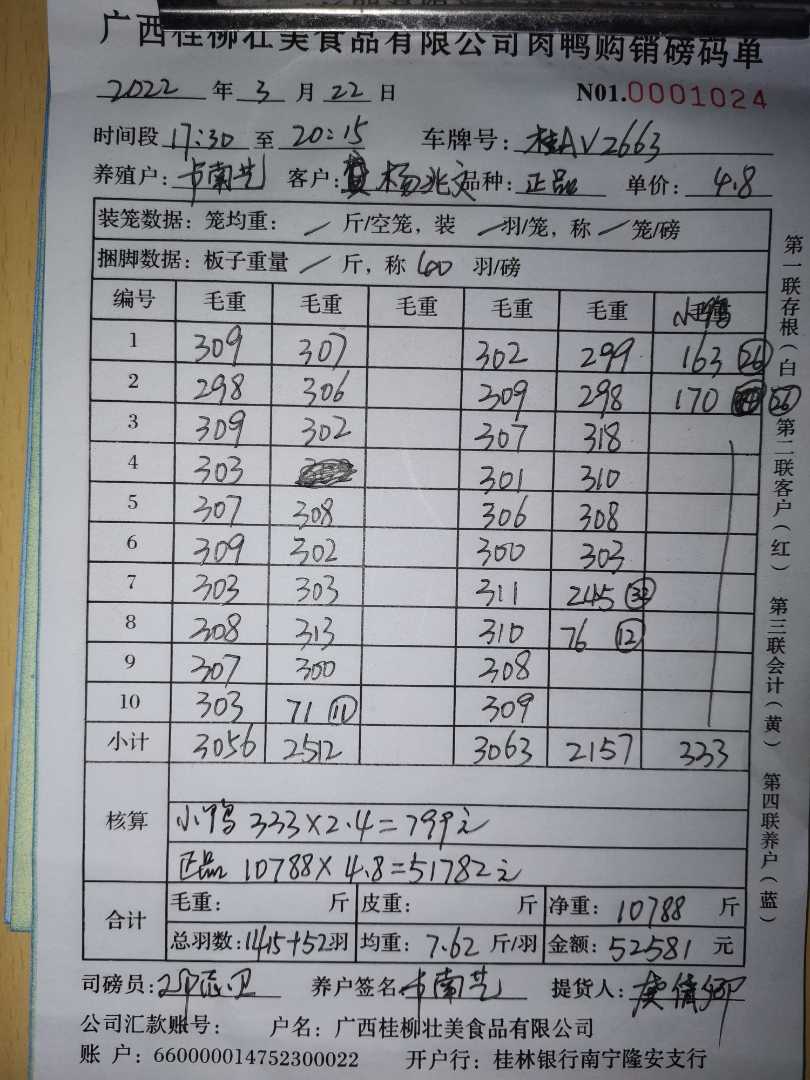 广西桂柳壮美食品有限公司肉鸭购销磅码单
2022 年 3 月 22 日 N01.0001024
时间段 17:30 至 20:15 车牌号: 桂AV2663
养殖户: 卡南艺 客户: 杨兆文 品种: 正品 单价: 4.8
装笼数据: 笼均重: / 斤/空笼, 装 / 羽/笼, 称 / 笼/磅
捆脚数据: 板子重量 / 斤, 称 羽/磅
编号 毛重 毛重 毛重 毛重 毛重 小鸭
1 309 307 302 299 163 26
2 298 306 309 298 170 26
3 309 302 307 318
4 303 301 310
5 307 308 306 308
6 309 302 300 303
7 303 303 311 245
8 308 313 310 76 12
9 307 300 308
10 303 71 11 309
小计 3056 2512 3063 2157 333
核算
小鸭 333×2.4=799元
正品 10788×4.8=51782元
合计
毛重: 斤 皮重: 斤 净重: 10788 斤
总羽数: 1415+52羽 均重: 7.62 斤/羽 金额: 52581 元
司磅员: 养户签名 卡南艺 提货人:
公司汇款账号: 户名: 广西桂柳壮美食品有限公司
账 户: 660000014752300022 开户行: 桂林银行南宁隆安支行
第一联存根(白) 第二联客户(红) 第三联会计(黄) 第四联养户(蓝)